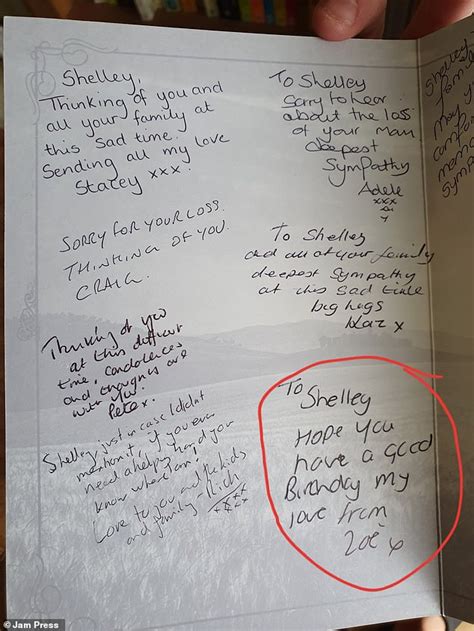 Shelley,
Thinking of you and
all your family at
this sad time.
Sending all my love
Stacey xxx.
SORRY FOR YOUR LOSS.
THINKING OF YOU.
CRAIG.
Thinking of you
at this difficult
time, condolences
and thoughts are
with you.
Pete x.
Shelley, just in case I didnt
mention it, if you ever
need a helping hand you
know where I am!
Love to you and the kids
and family - Rich
xxxx
To Shelley
Sorry to hear
about the loss
of your Mam
Deepest
Sympathy
Adele
xxx
To Shelley
and all of your family
deepest sympathy
at this sad time
big hugs
Kaz x
To
Shelley
Hope you
have a good
Birthday my
love from
Zoë x
© Jam Press